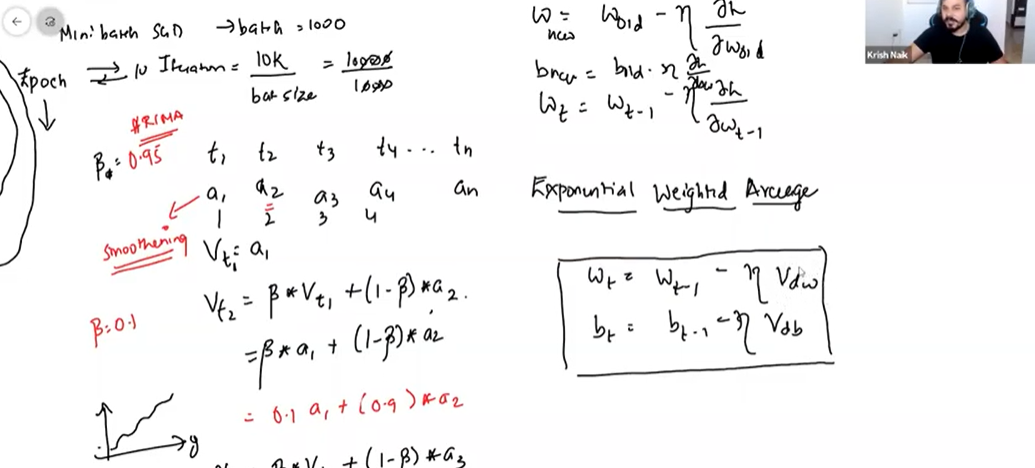 Mini batch SGD → batch = 1000
Epoch ⇄ 10 Iteration = 10K / bat size = 10000 / 1000
#RIMA
β = 0.95
t1 t2 t3 t4 ... tn
a1 a2 a3 a4 an
1 2 3 4
Smoothening
Vt1 = a1
Vt2 = β * Vt1 + (1-β) * a2.
β = 0.1
= β * a1 + (1-β) * a2
= 0.1 a1 + (0.9) * a2
y
β * V + (1-β) * a3
w new = wold - η ∂L / ∂wold
bnew = bold - η ∂L
wt = wt-1 - η ∂L / ∂wt-1
Exponential Weighted Average
wt = wt-1 - η Vdw
bt = bt-1 - η Vdb
Krish Naik